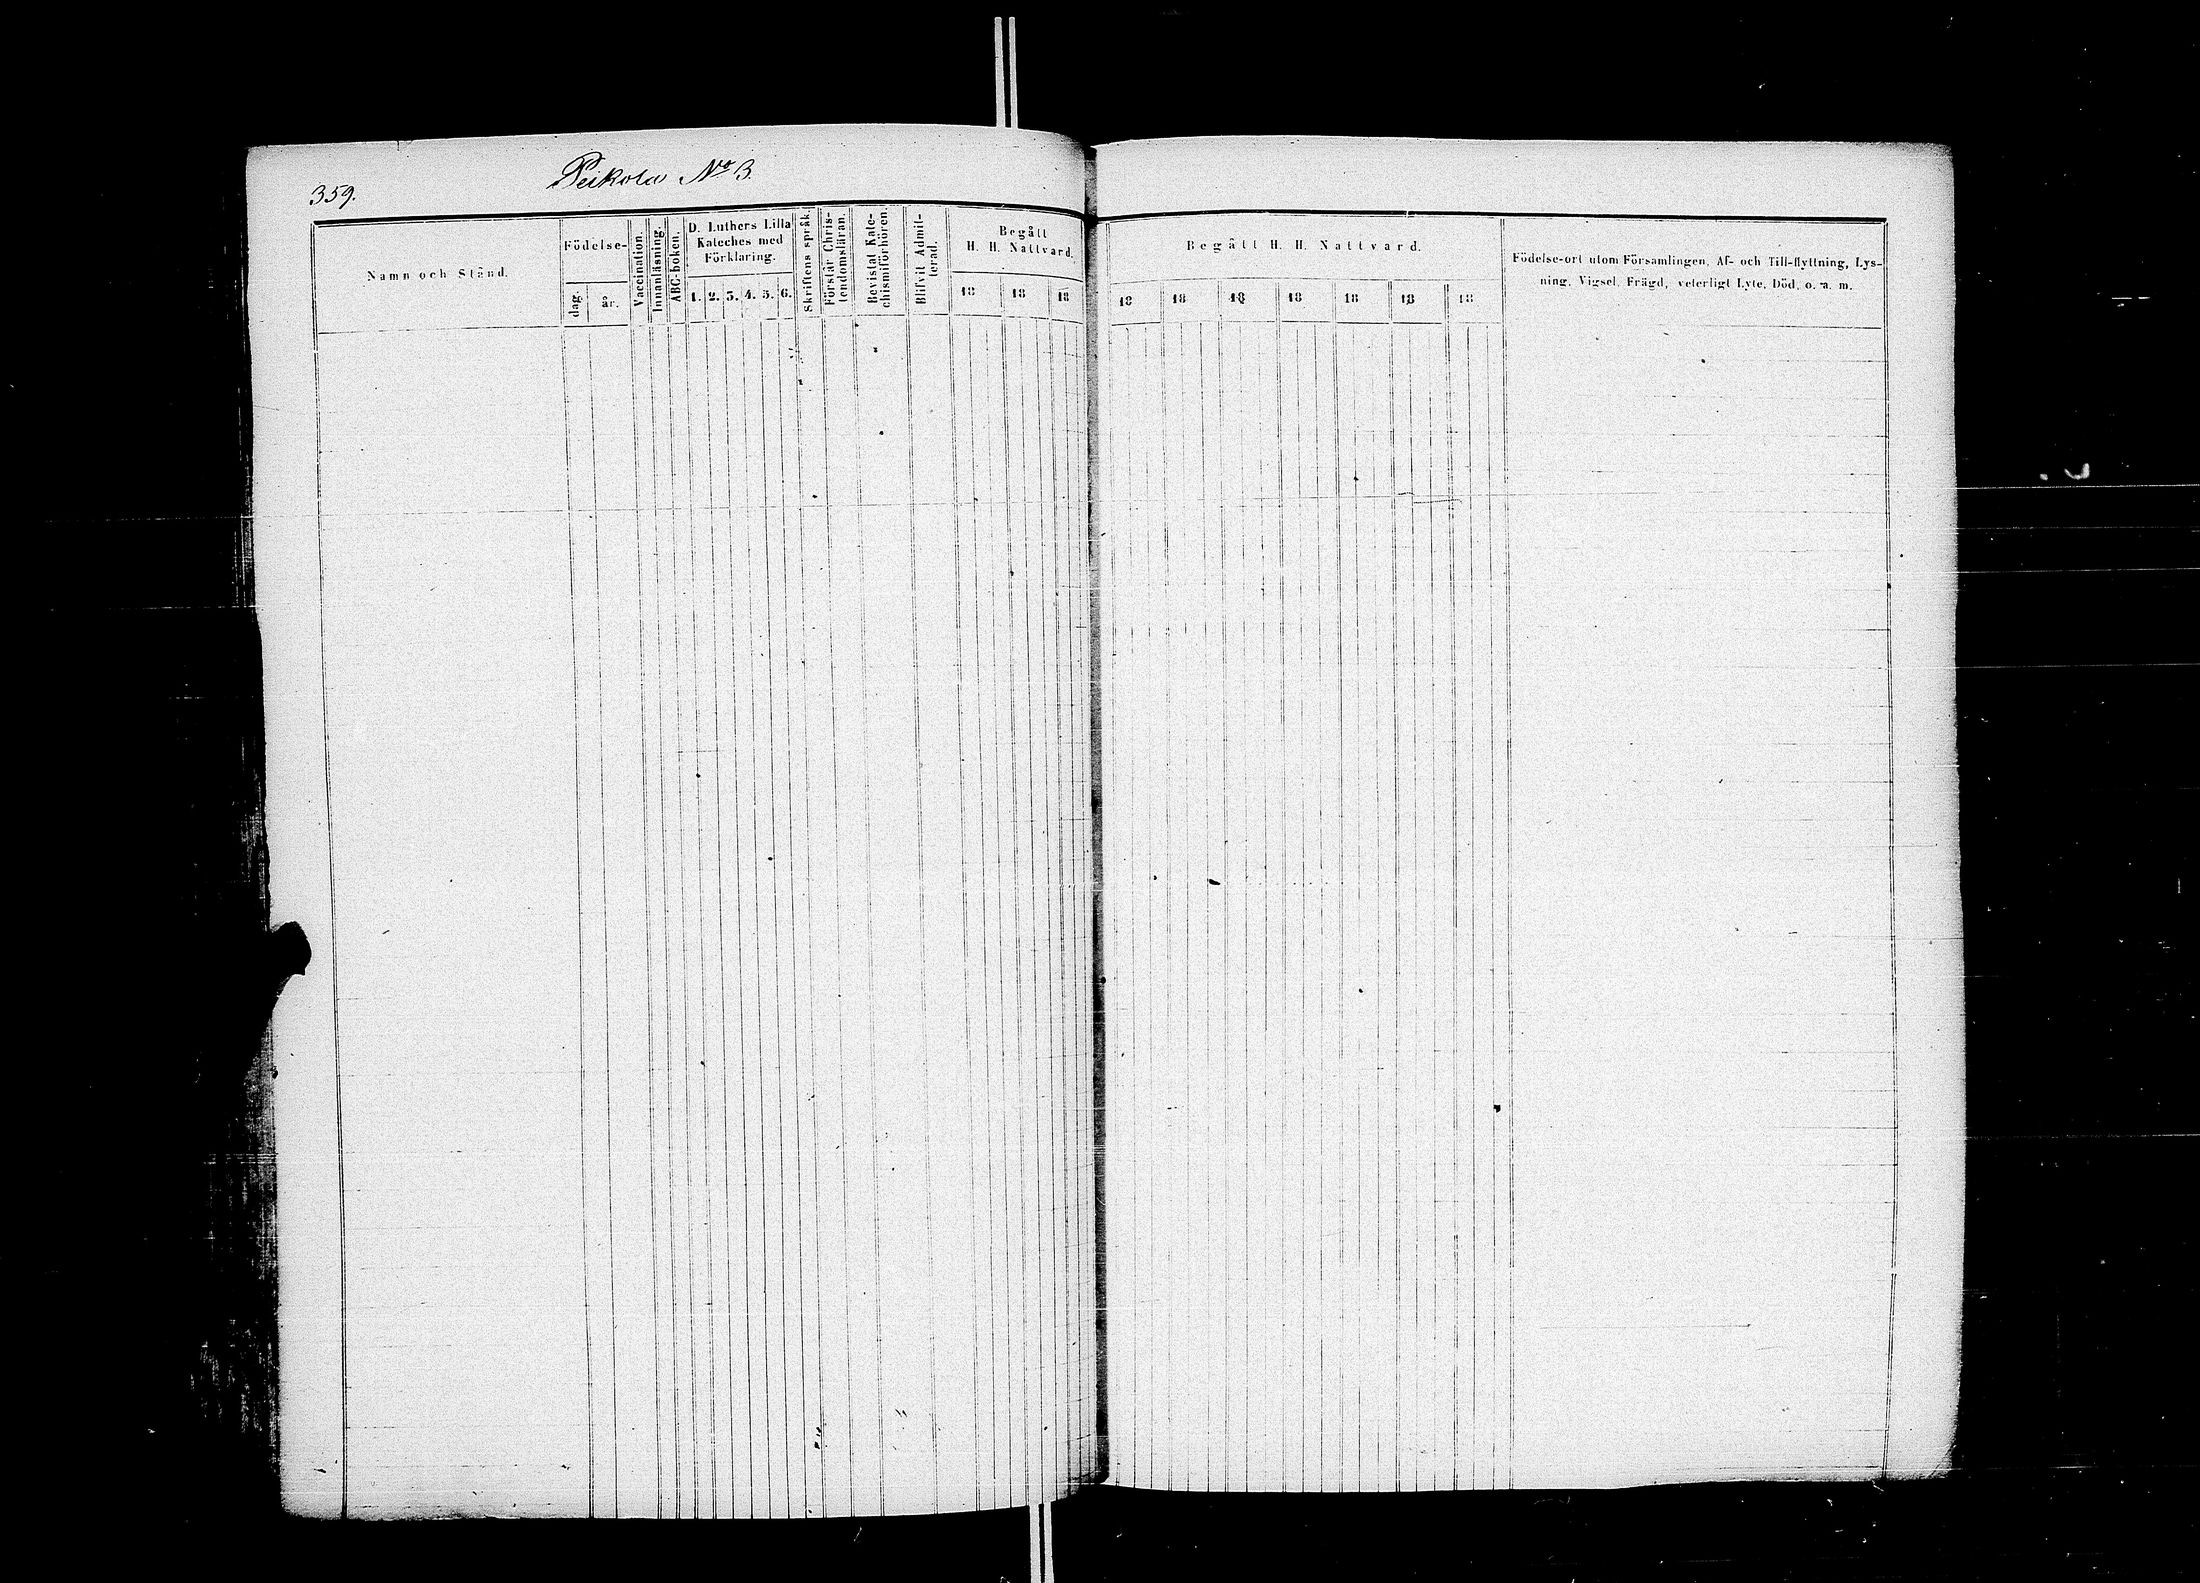 359.
Peikola No 3.
Namn och Stånd.
Födelse-
dag.
år.
Vaccination.
Innanläsning.
ABC-boken.
D. Luthers Lilla
Kateches med
Förklaring.
1. 2. 3. 4. 5. 6.
Skriftens språk.
Förstår Chris-
tendomsläran.
Bevistat Kate-
chismiförhören.
Blifvit Admit-
terad.
Begått
H. H. Nattvard.
18 18 18
Begått H. H. Nattvard.
18 18 18 18 18 18 18
Födelse-ort utom Församlingen, Af- och Till-flyttning, Lys-
ning, Vigsel, Frägd, veterligt Lyte, Död, o. a. m.